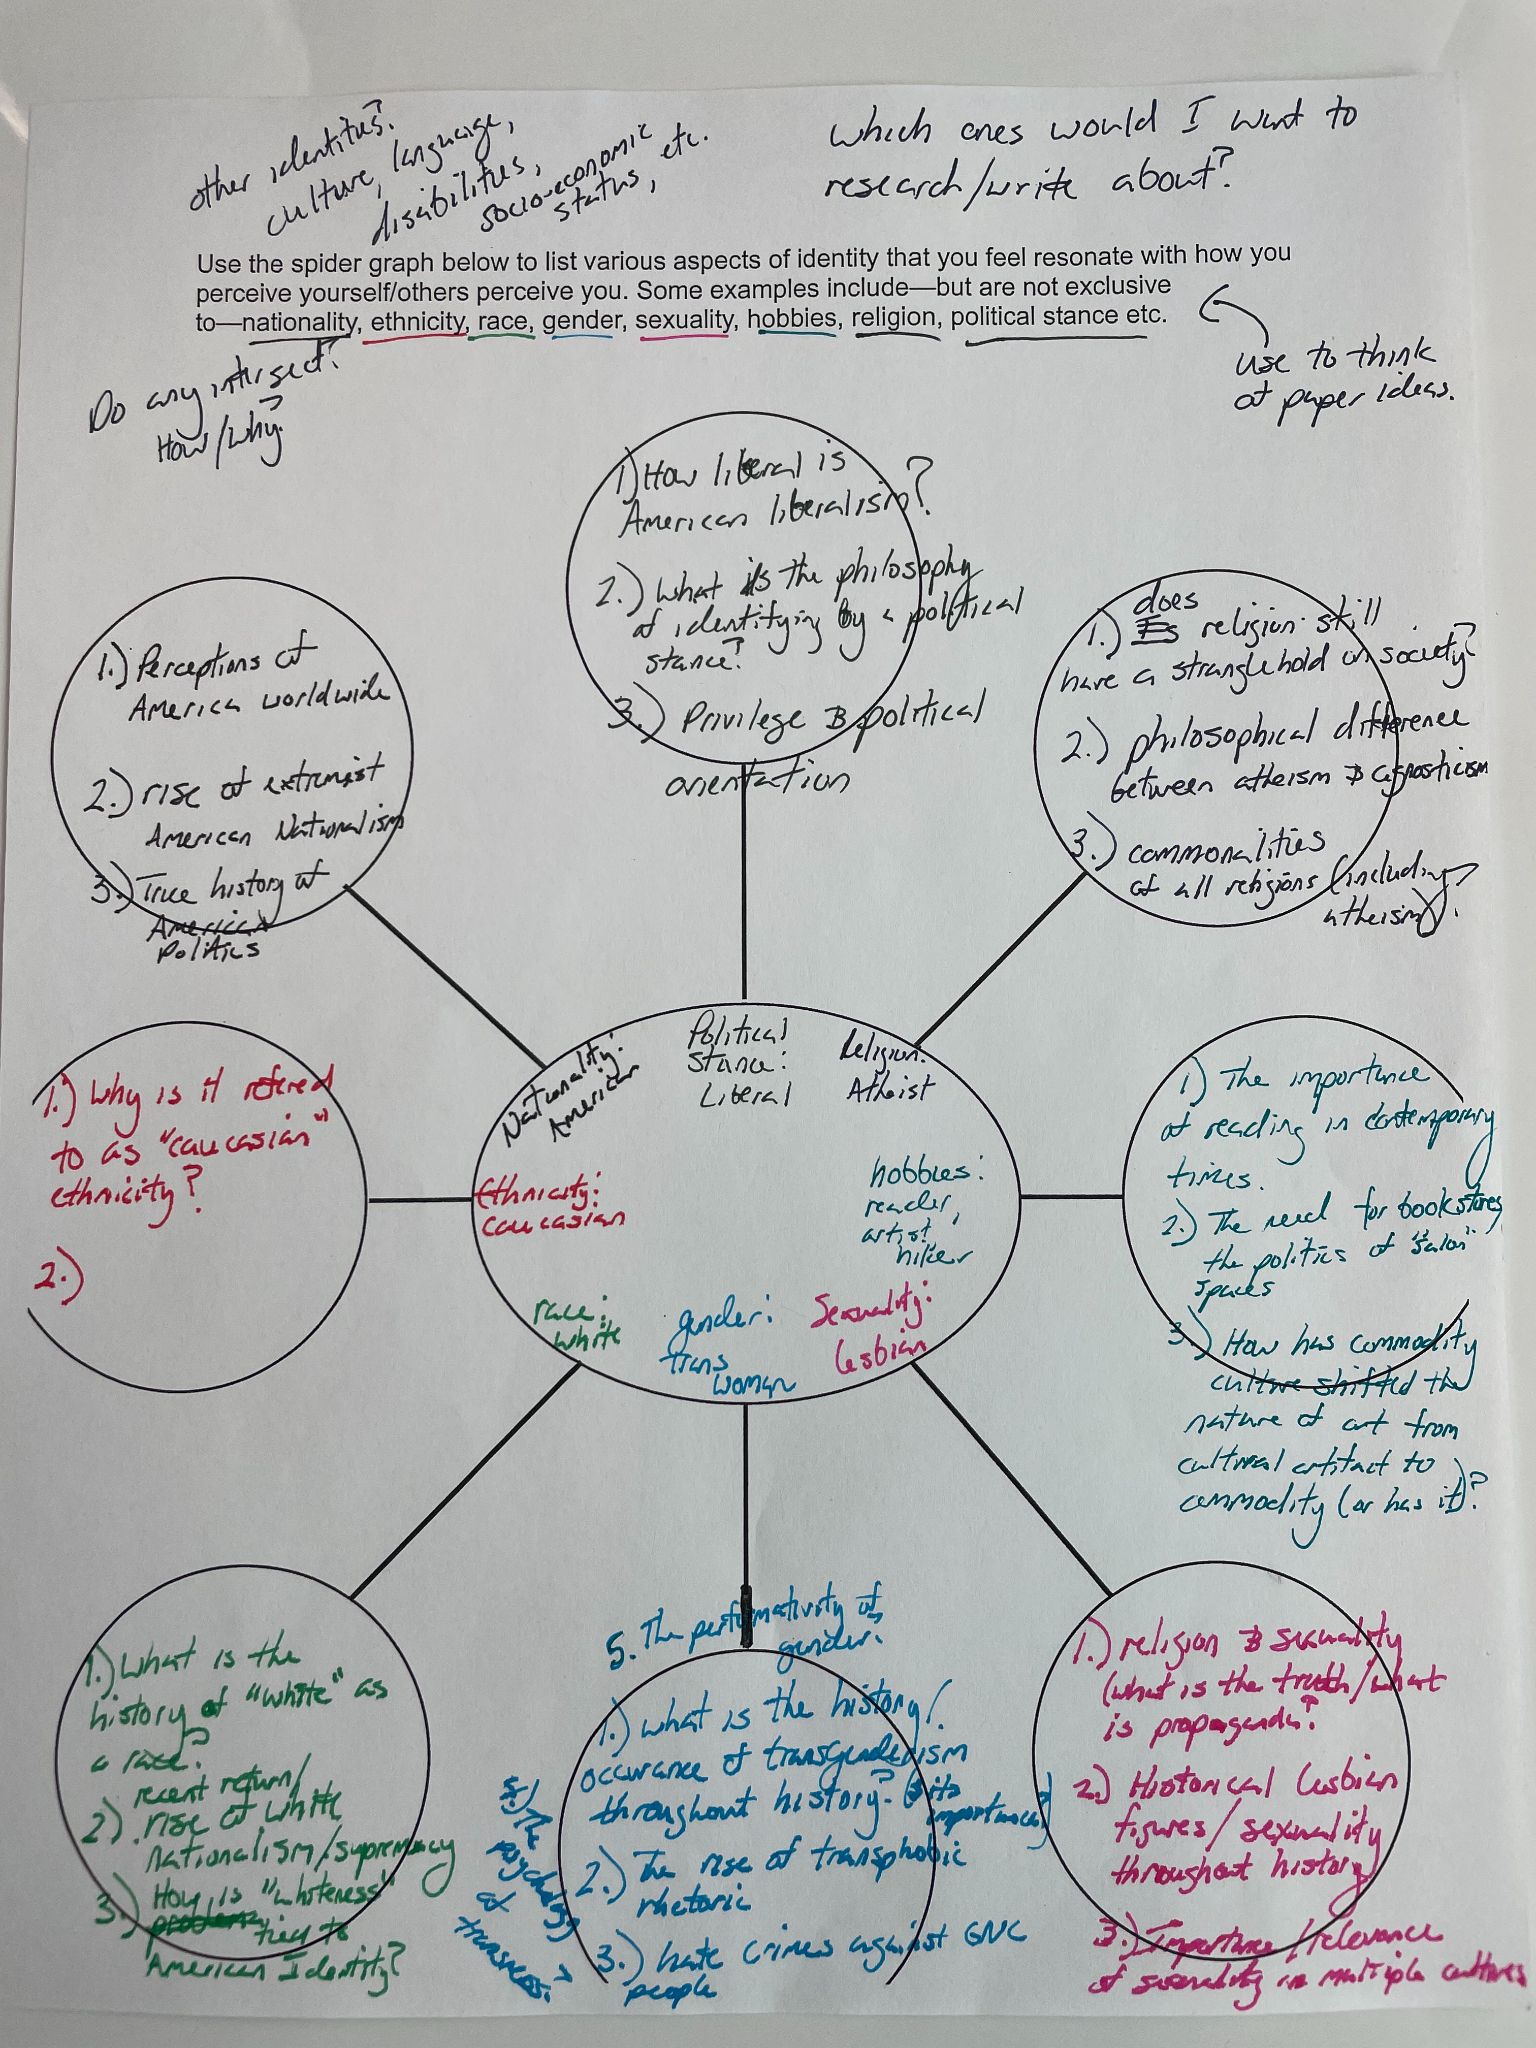 other identities?
culture, language,
disabilities,
socio-economic
status, etc.
Which ones would I want to
research/write about?
Use the spider graph below to list various aspects of identity that you feel resonate with how you
perceive yourself/others perceive you. Some examples include—but are not exclusive
to—nationality, ethnicity, race, gender, sexuality, hobbies, religion, political stance etc.
use to think
of paper ideas.
Do any intersect?
How/why?
1.) How liberal is
American liberalism?
2.) What is the philosophy
of identifying by a political
stance?
3.) Privilege & political
orientation
1.) Perceptions of
America worldwide
2.) rise of extremist
American Nationalism
3.) True history of
American
Politics
1.) does religion still
have a stranglehold on society?
2.) philosophical difference
between atheism & agnosticism
3.) commonalities
of all religions (including
atheism)?
Nationality:
American
Political
Stance:
Liberal
Religion:
Atheist
Ethnicity:
caucasian
hobbies:
reader,
artist,
hiker
race:
white
gender:
trans
woman
Sexuality:
Lesbian
1.) Why is it refered
to as "caucasian"
ethnicity?
2.)
1.) The importance
of reading in contemporary
times.
2.) The need for bookstores,
the politics of "salon"
spaces
3.) How has commodity
culture shifted the
nature of art from
cultural artifact to
commodity (or has it)?
1.) What is the
history of "white" as
a race?
2.) recent return/
rise of white
nationalism/supremacy
3.) How is "whiteness"
tied to
American Identity?
5. The performativity of
gender.
1.) what is the history/
occurance of transgenderism
throughout history? (& its
importance)
2.) The rise of transphobic
rhetoric
3.) hate crimes against GNC
people
5.) The
psychology
of
transness?
1.) religion & sexuality
(what is the truth/what
is propaganda?
2.) Historical Lesbian
figures/sexuality
throughout history
3.) Importance/relevance
of sexuality in multiple cultures